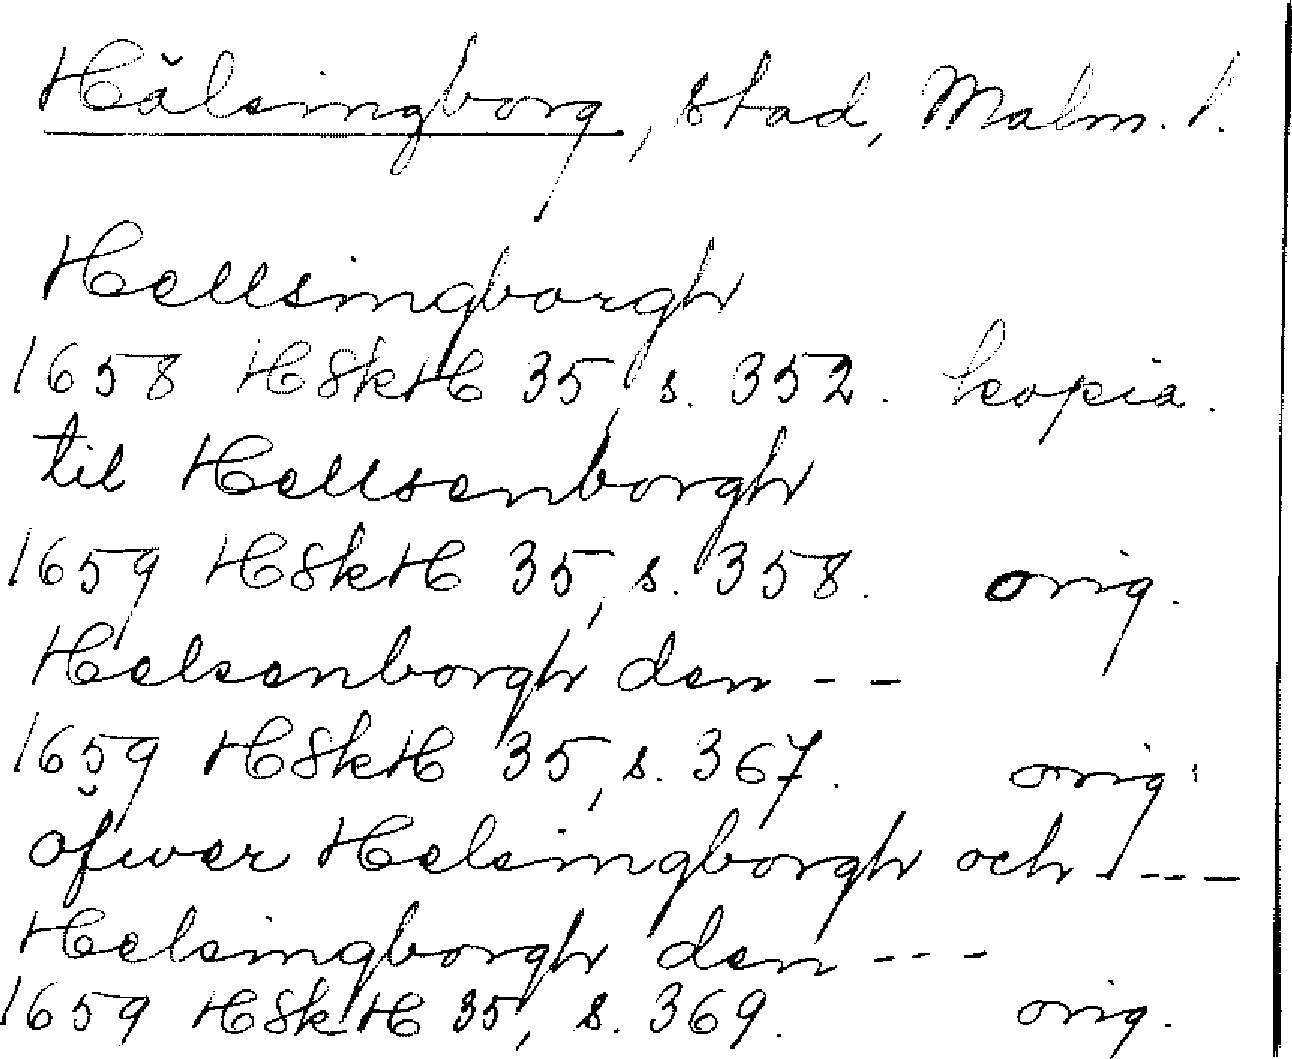 Hälsingborg, stad, Malm. l.
Hellsingborgh
1658 HSkH 35, s. 352. kopia.
til Hellsenborgh
1659 HSkH 35, s. 358. orig.
Helsenborgh den - -
1659 HSkH 35, s. 367. orig.
öfwer Helsingborgh och - - - -
Helsingborgh den - - -
1659 HSkH 35, s. 369. orig.